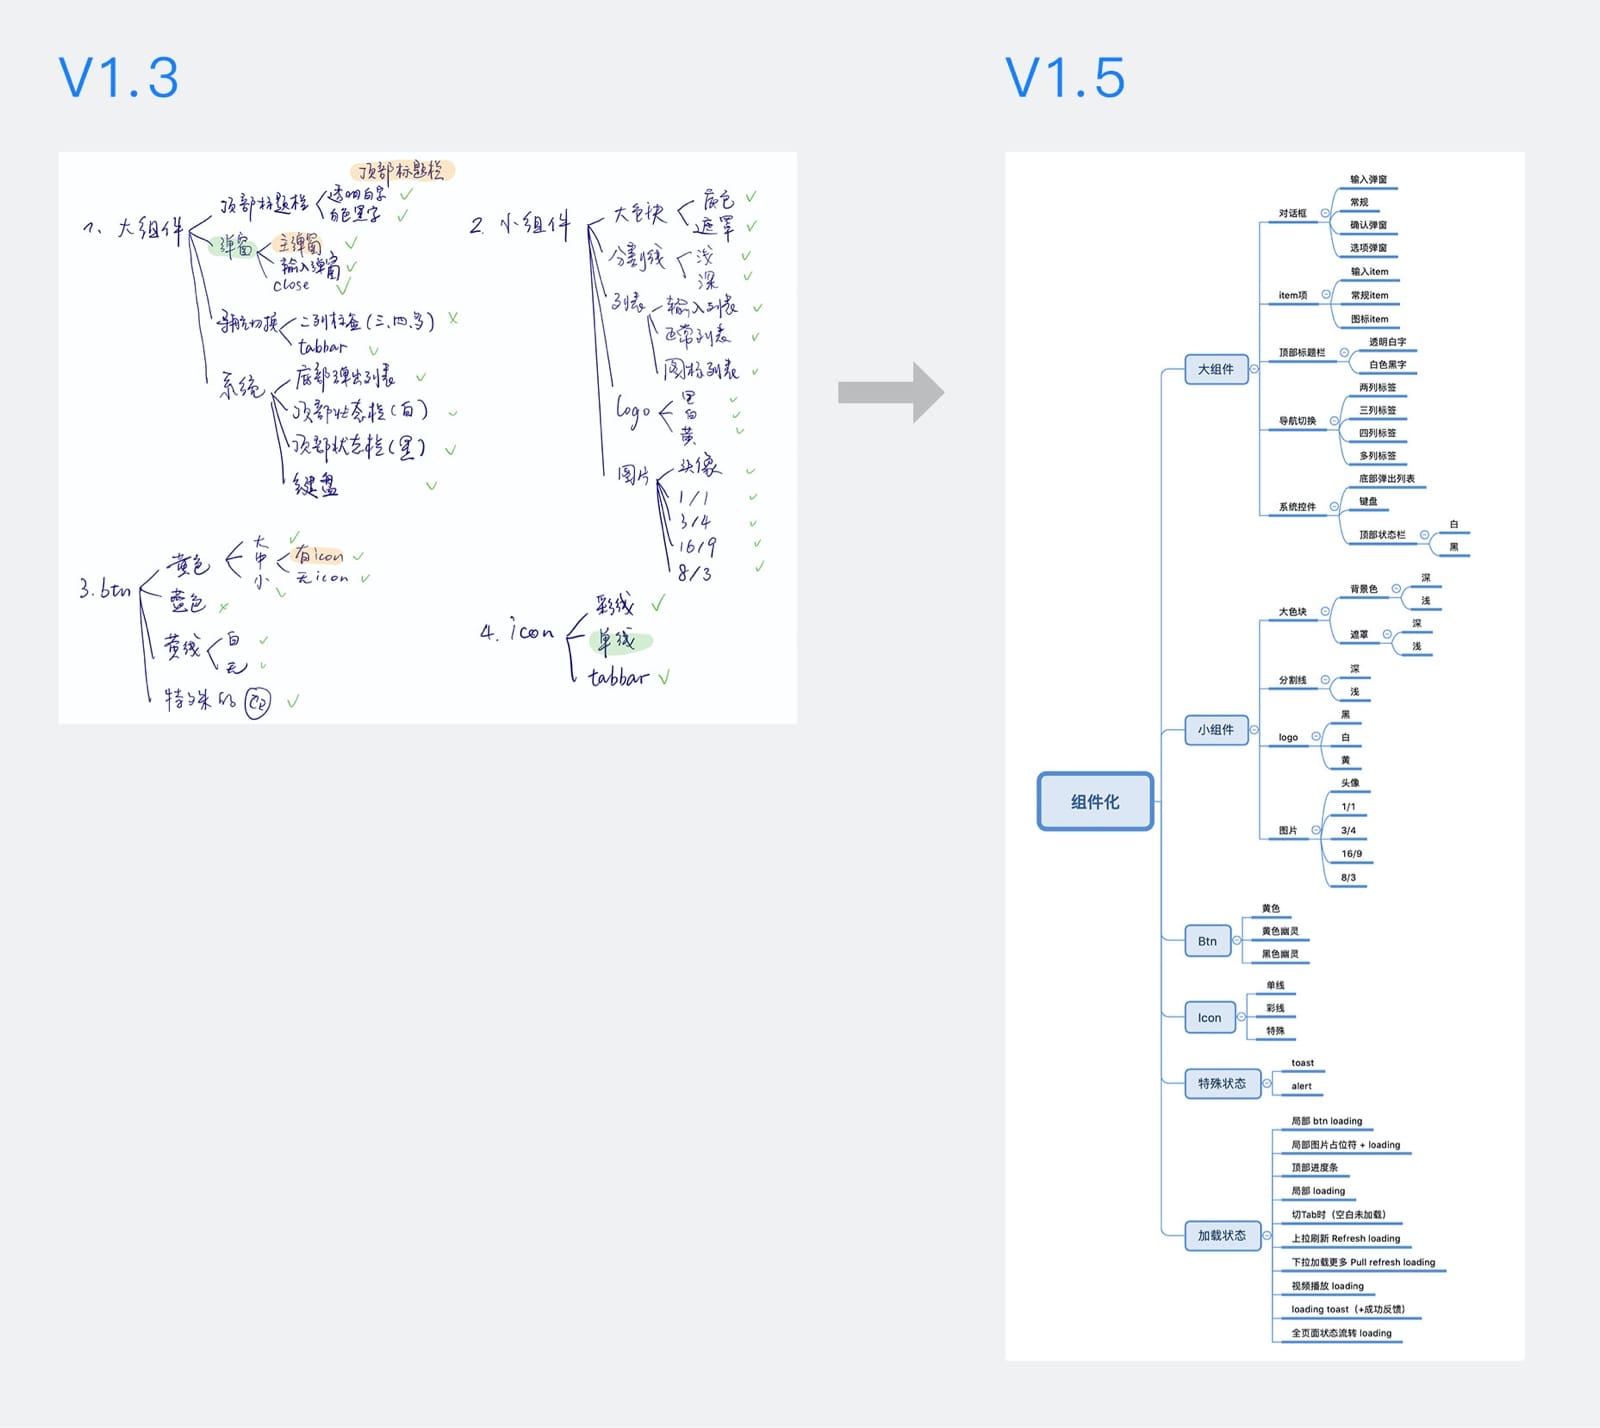 V1.3
V1.5
顶部标题栏
1、大组件
顶部标题栏
透明白字
白色黑字
弹窗
主弹窗
输入弹窗
close
导航切换
二列标签(三、四、多)
tabbar
系统
底部弹出列表
顶部状态栏(白)
顶部状态栏(黑)
键盘
2. 小组件
大色块
底色
遮罩
分割线
浅
深
列表
输入列表
正常列表
图标列表
logo
黑
白
黄
图片
头像
1/1
3/4
16/9
8/3
3.btn
黄色
大
中
小
有icon
无icon
蓝色
黄线
白
无
特殊的
4. icon
彩线
单线
tabbar
组件化
大组件
对话框
输入弹窗
常规
确认弹窗
选项弹窗
item项
输入item
常规item
图标item
顶部标题栏
透明白字
白色黑字
导航切换
两列标签
三列标签
四列标签
多列标签
系统控件
底部弹出列表
键盘
顶部状态栏
白
黑
小组件
大色块
背景色
深
浅
遮罩
深
浅
分割线
深
浅
logo
黑
白
黄
图片
头像
1/1
3/4
16/9
8/3
Btn
黄色
黄色幽灵
黑色幽灵
Icon
单线
彩线
特殊
特殊状态
toast
alert
加载状态
局部 btn loading
局部图片占位符 + loading
顶部进度条
局部 loading
切Tab时（空白未加载）
上拉刷新 Refresh loading
下拉加载更多 Pull refresh loading
视频播放 loading
loading toast（+成功反馈）
全页面状态流转 loading